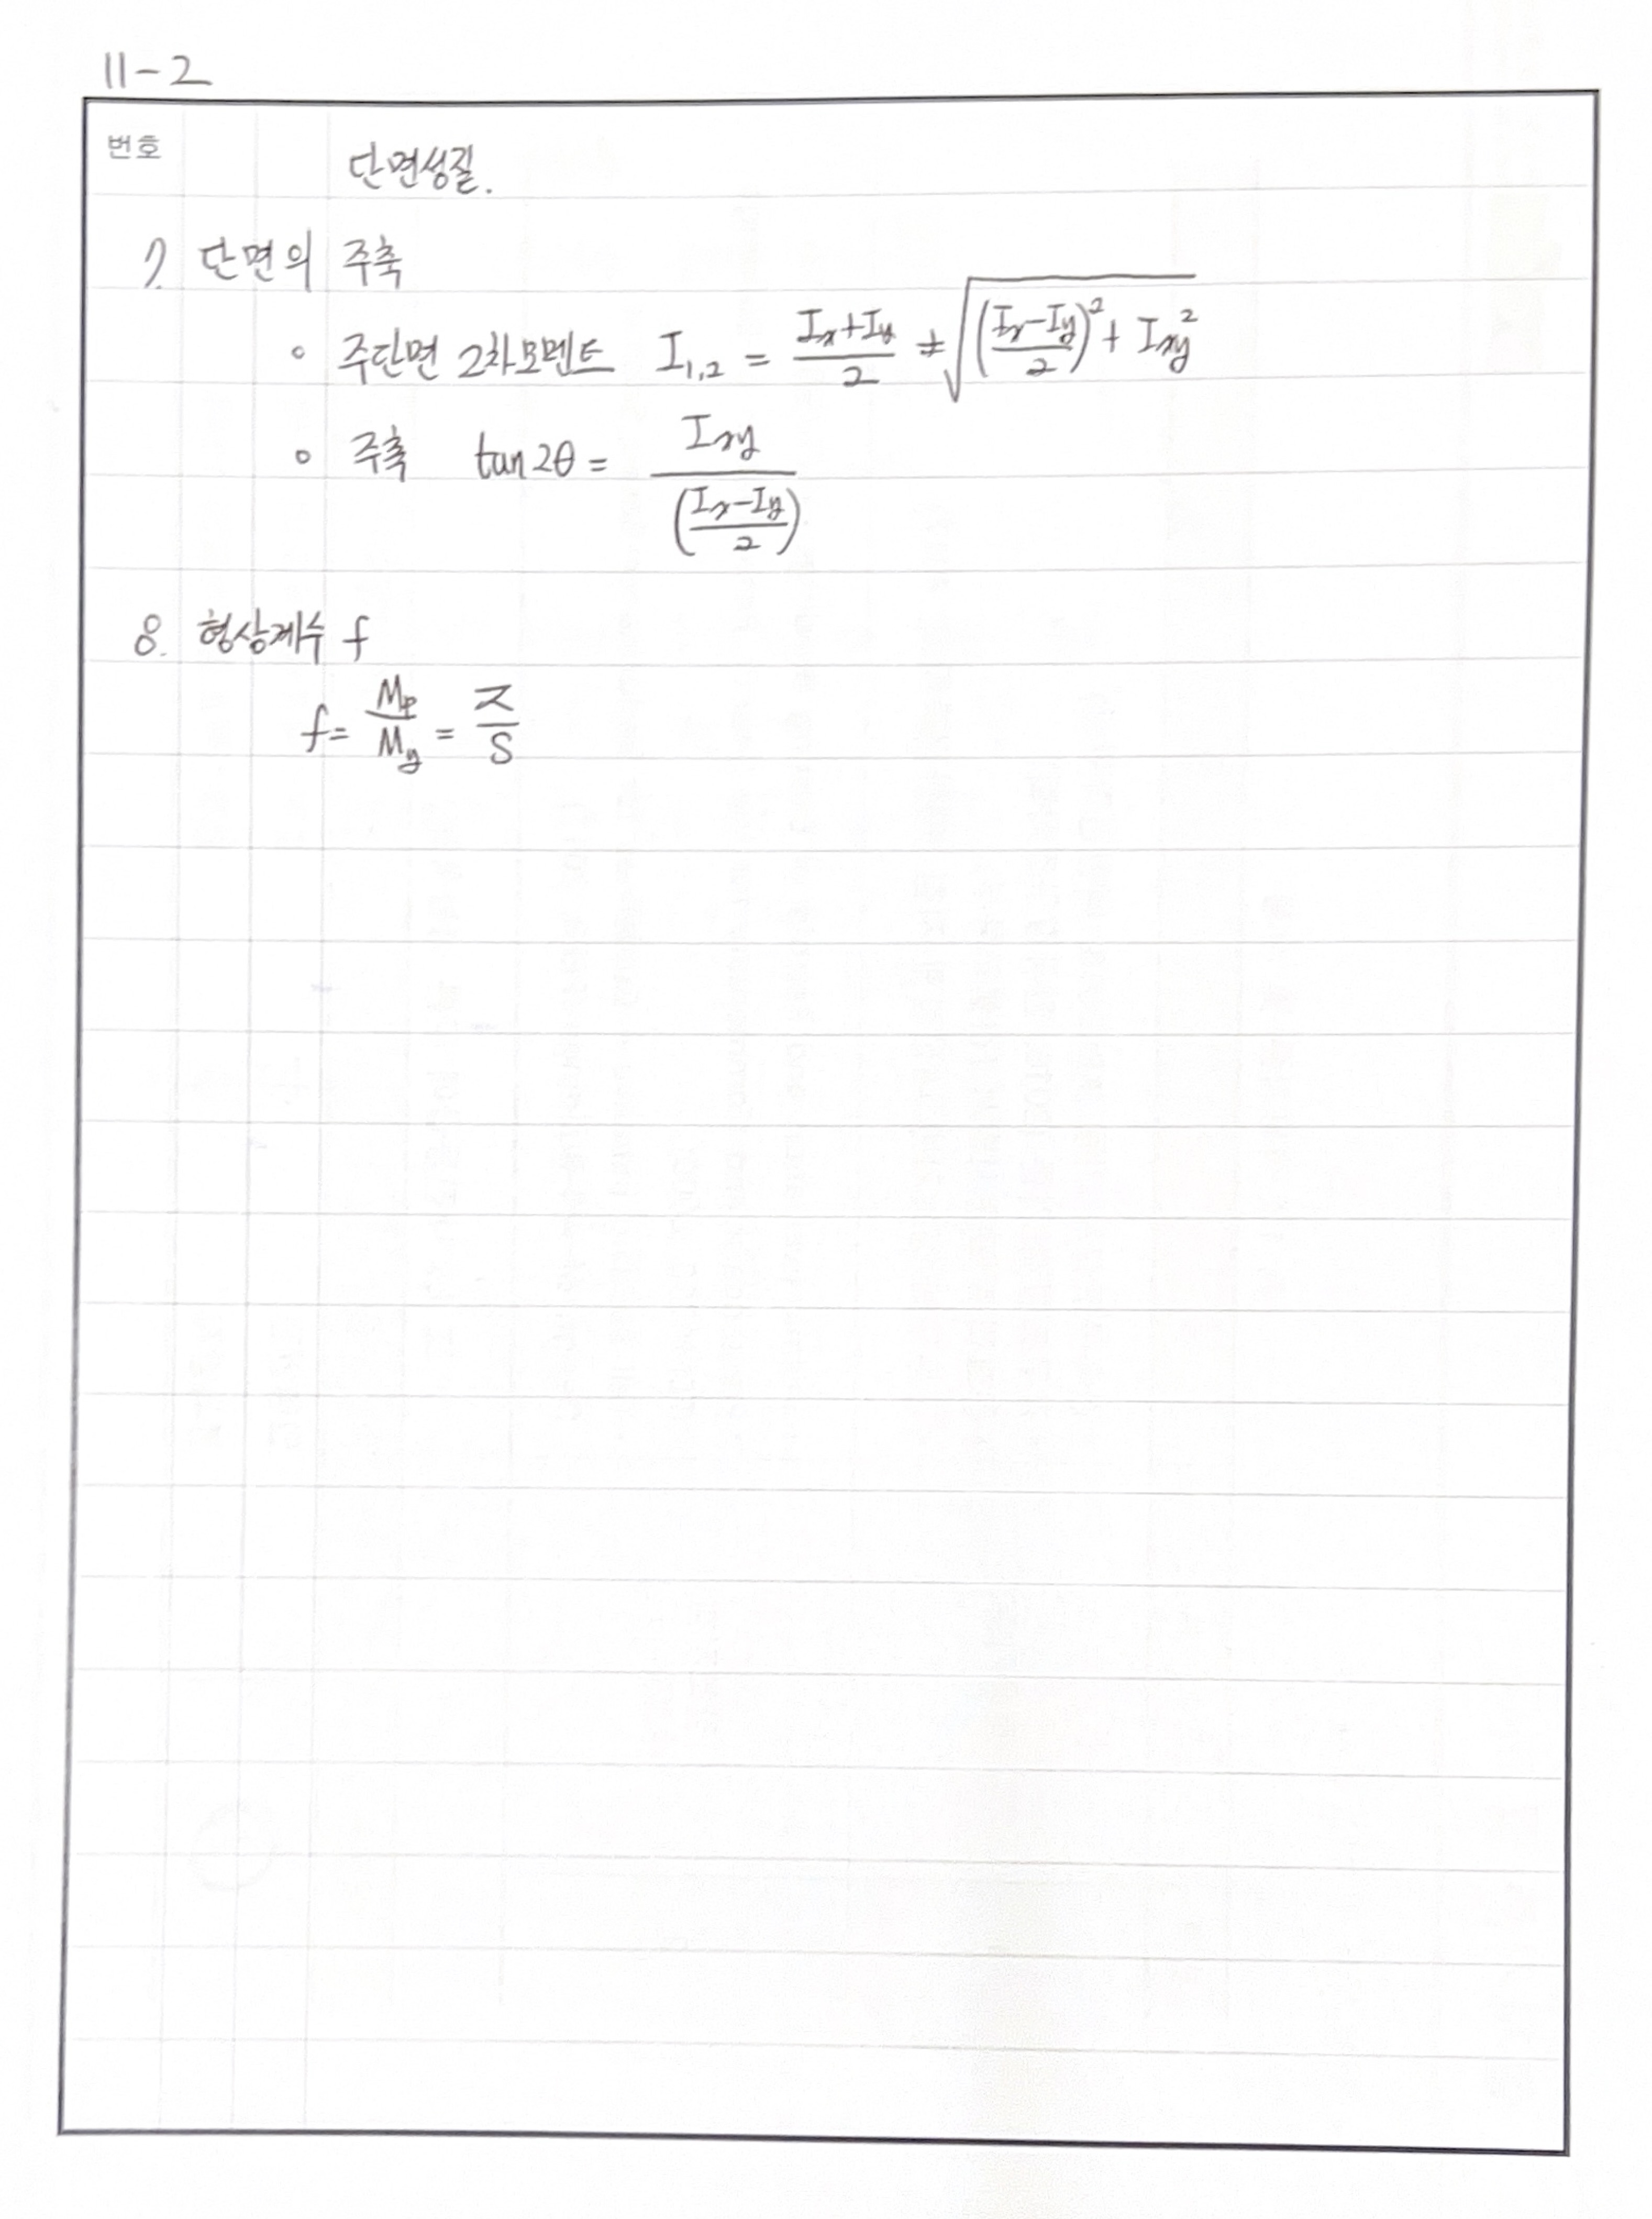 11-2
번호
단면성질.
7. 단면의 주축
∘ 주단면 2차모멘트 I₁,₂ = (Ix+Iy)/2 ± √(((Ix-Iy)/2)² + Ixy²)
∘ 주축 tan2θ = Ixy/((Ix-Iy)/2)
8. 형상계수 f
f = Mp/My = Z/S